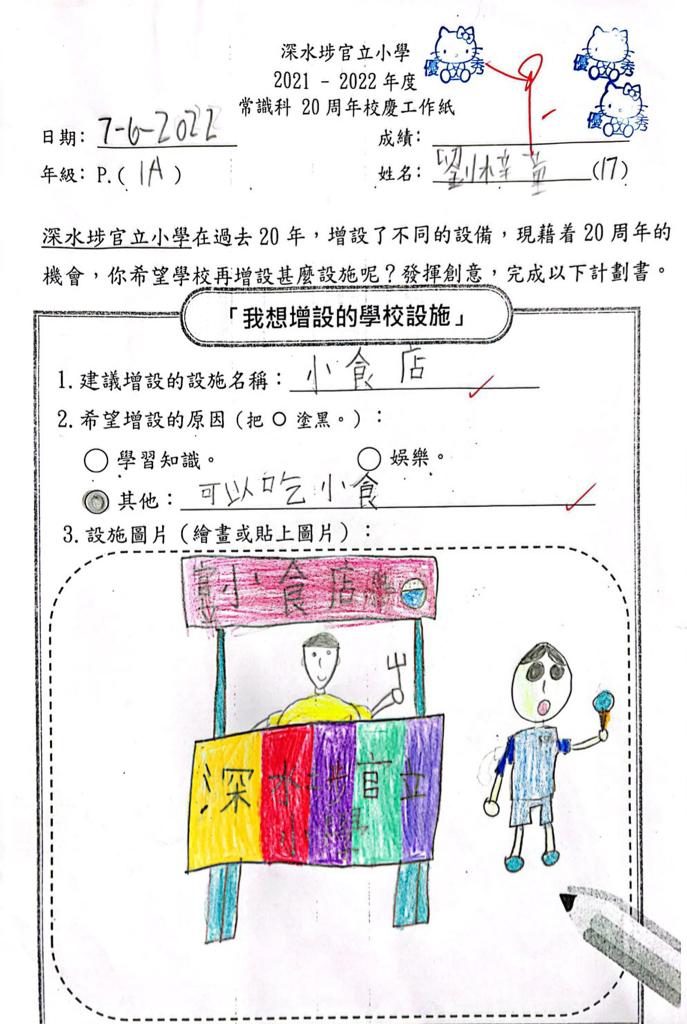 深水埗官立小學
2021 - 2022 年度
常識科 20 周年校慶工作紙
優 秀
優 秀
日期: 7-6-2022 成績:
年級: P.( 1A ) 姓名: 劉梓童 (17)
深水埗官立小學在過去 20 年，增設了不同的設備，現藉着 20 周年的
機會，你希望學校再增設甚麼設施呢？發揮創意，完成以下計劃書。
「我想增設的學校設施」
1. 建議增設的設施名稱：小食店
2. 希望增設的原因（把 O 塗黑。）：
學習知識。 娛樂。
其他：可以吃小食
3. 設施圖片（繪畫或貼上圖片）：
小食店
深水埗官立
小學